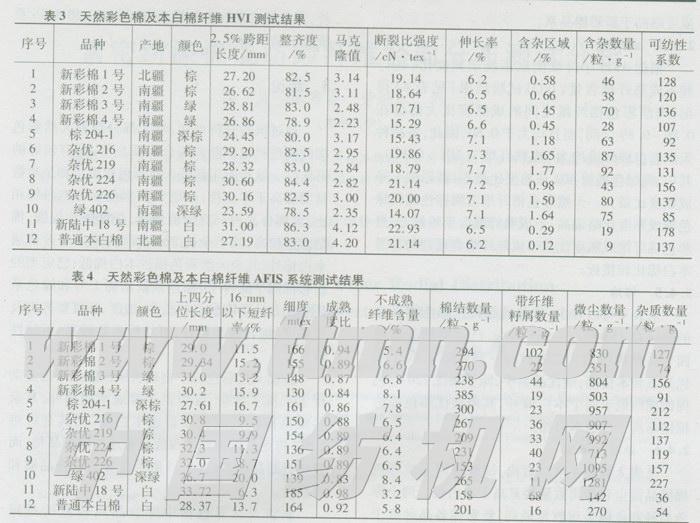 表 3 天然彩色棉及本白棉纤维 HVI 测试结果
序号 品种 产地 颜色 2.5% 跨距长度/mm 整齐度/% 马克隆值 断裂比强度/cN·tex⁻¹ 伸长率/% 含杂区域/% 含杂数量/粒·g⁻¹ 可纺性系数
1 新彩棉 1 号 北疆 棕 27.20 82.5 3.14 19.14 6.2 0.58 46 128
2 新彩棉 2 号 南疆 棕 26.62 81.5 3.11 18.64 6.5 0.66 38 120
3 新彩棉 3 号 南疆 绿 28.81 83.0 2.48 17.71 6.5 1.45 70 136
4 新彩棉 4 号 南疆 绿 26.86 78.9 2.23 15.29 6.6 0.45 28 107
5 棕 204-1 南疆 深棕 24.45 80.0 3.17 15.43 7.1 1.18 63 92
6 杂优 216 南疆 棕 29.20 82.5 2.95 19.86 7.3 1.65 87 135
7 杂优 219 南疆 棕 28.32 83.0 2.84 18.79 7.7 1.77 92 131
8 杂优 224 南疆 棕 30.60 84.4 2.82 21.14 7.2 0.98 43 156
9 杂优 226 南疆 棕 30.16 82.5 3.00 20.00 7.1 1.50 80 137
10 绿 402 南疆 深绿 23.59 78.5 2.35 14.07 7.1 1.64 75 85
11 新陆中 18 号 南疆 白 31.00 86.3 4.12 22.93 6.5 0.29 19 178
12 普通本白棉 北疆 白 27.19 83.0 4.20 21.14 6.2 0.12 9 137
表 4 天然彩色棉及本白棉纤维 AFIS 系统测试结果
序号 品种 颜色 上四分位长度/mm 16 mm 以下短纤率/% 细度/mtex 成熟度比 不成熟纤维含量/% 棉结数量/粒·g⁻¹ 带纤维籽屑数量/粒·g⁻¹ 微尘数量/粒·g⁻¹ 杂质数量/粒·g⁻¹
1 新彩棉 1 号 棕 29.0 11.5 166 0.94 5.4 294 102 830 127
2 新彩棉 2 号 棕 15.2 155 0.89 6.6 270 22 351 74
3 新彩棉 3 号 绿 31.0 13.2 148 0.87 6.8 238 44 804 156
4 新彩棉 4 号 绿 30.2 15.9 130 0.84 8.1 385 19 503 91
5 棕 204-1 深棕 27.61 16.7 161 0.86 7.8 300 23 957 212
6 杂优 216 棕 30.8 9.5 150 0.88 6.5 267 36 907 112
7 杂优 219 棕 30.4 9.9 154 0.89 6.4 209 33 992 137
8 杂优 224 棕 32.3 11.3 136 0.89 6.4 231 40 713 119
9 杂优 226 棕 32.0 151 0.89 6.5 153 23 1095 157
10 绿 402 深绿 20.0 139 0.83 8.4 265 11 1281 227
11 新陆中 18 号 白 33.72 6.3 185 0.98 3.2 158 68 142 36
12 普通本白棉 白 28.37 13.7 164 0.92 5.8 201 16 270 54
www.ttmn.com
中国纺机网